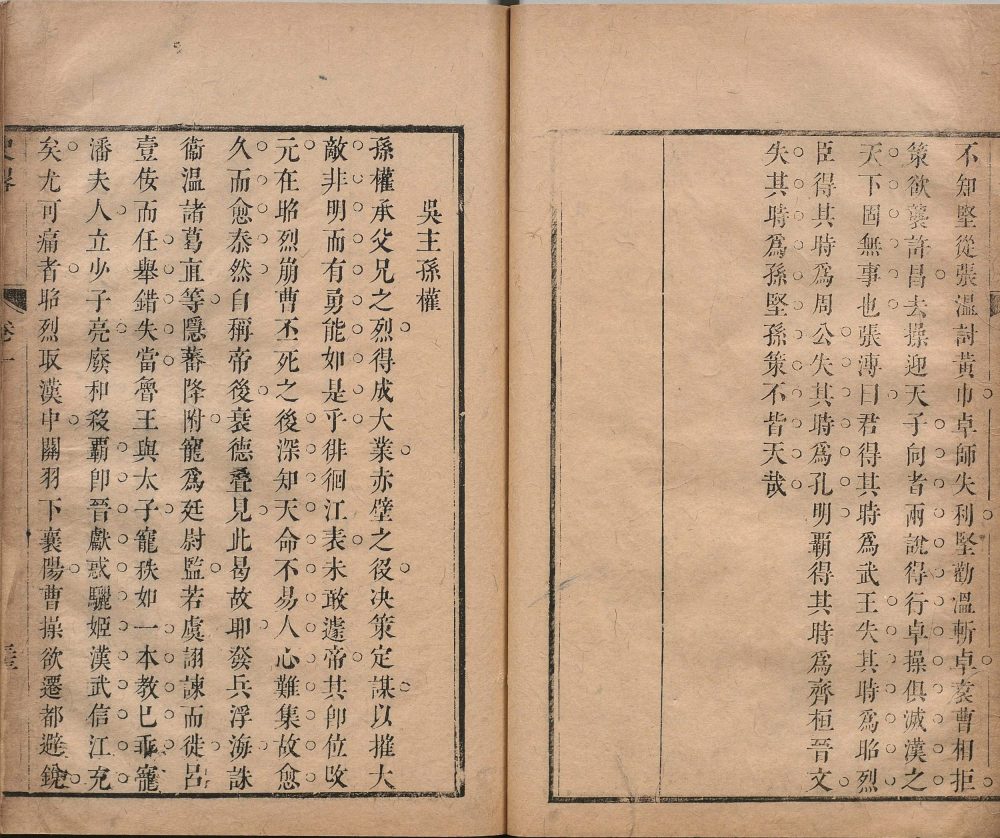 不知堅從張溫討黃巾卓師失利堅勸溫斬卓袁曹相拒
策欲襲許昌去操迎天子向者兩說得行卓操俱滅漢之
天下固無事也張溥曰君得其時爲武王失其時爲昭烈
臣得其時爲周公失其時爲孔明霸得其時爲齊桓晉文
失其時爲孫堅孫策不皆天哉
吳主孫權
孫權承父兄之烈得成大業赤壁之役决策定謀以摧大
敵非明而有勇能如是乎徘徊江表未敢遽帝其卽位攺
元在昭烈崩曹丕死之後深知天命不易人心難集故愈
久而愈泰然自稱帝後衰德疊見此曷故耶發兵浮海誅
衞溫諸葛直等隱蕃降附寵爲廷尉監若虞翻諫而徙呂
壹佞而任舉錯失當魯王與太子寵秩如一本教已乖寵
潘夫人立少子亮廢和殺霸卽晉獻惑驪姬漢武信江充
矣尤可痛者昭烈取漢中關羽下襄陽曹操欲遷都避銳
卷一